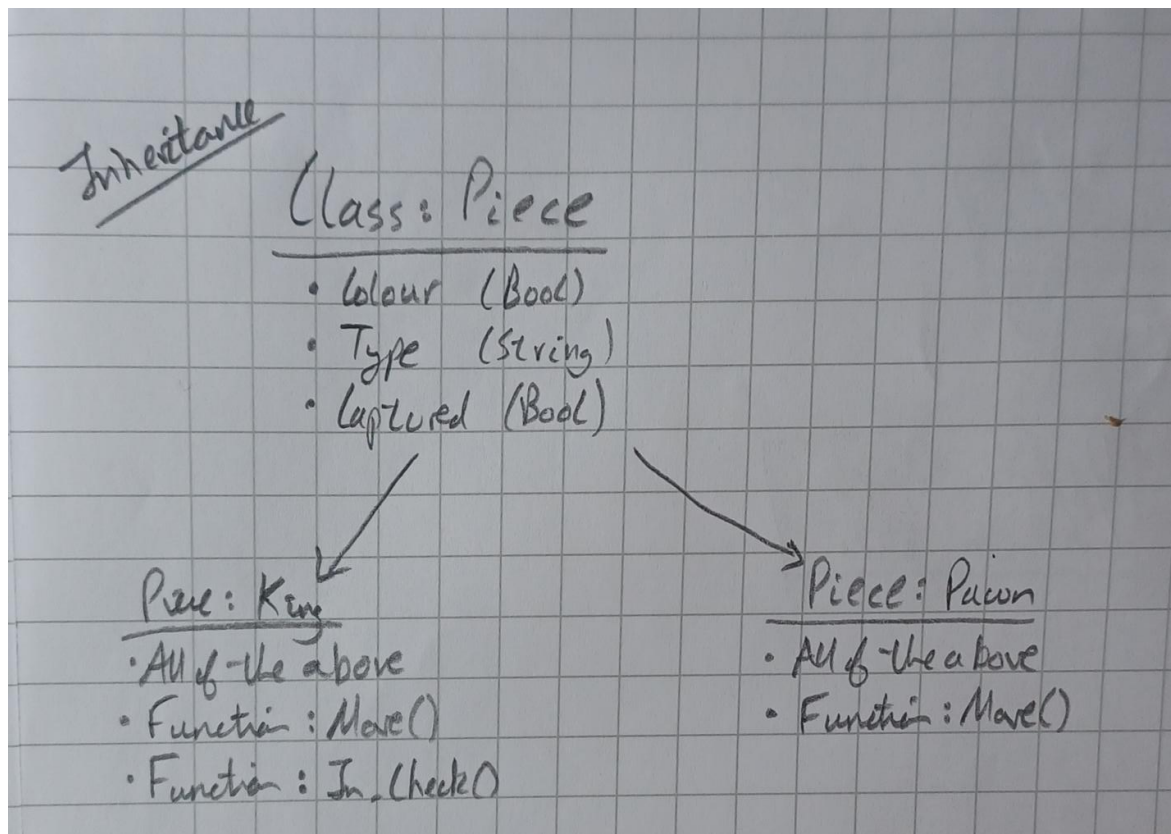 Inheritance
Class: Piece
• Colour (Bool)
• Type (String)
• Captured (Bool)
Piece: King
• All of the above
• Function: Move()
• Function: In_Check()
Piece: Pawn
• All of the above
• Function: Move()